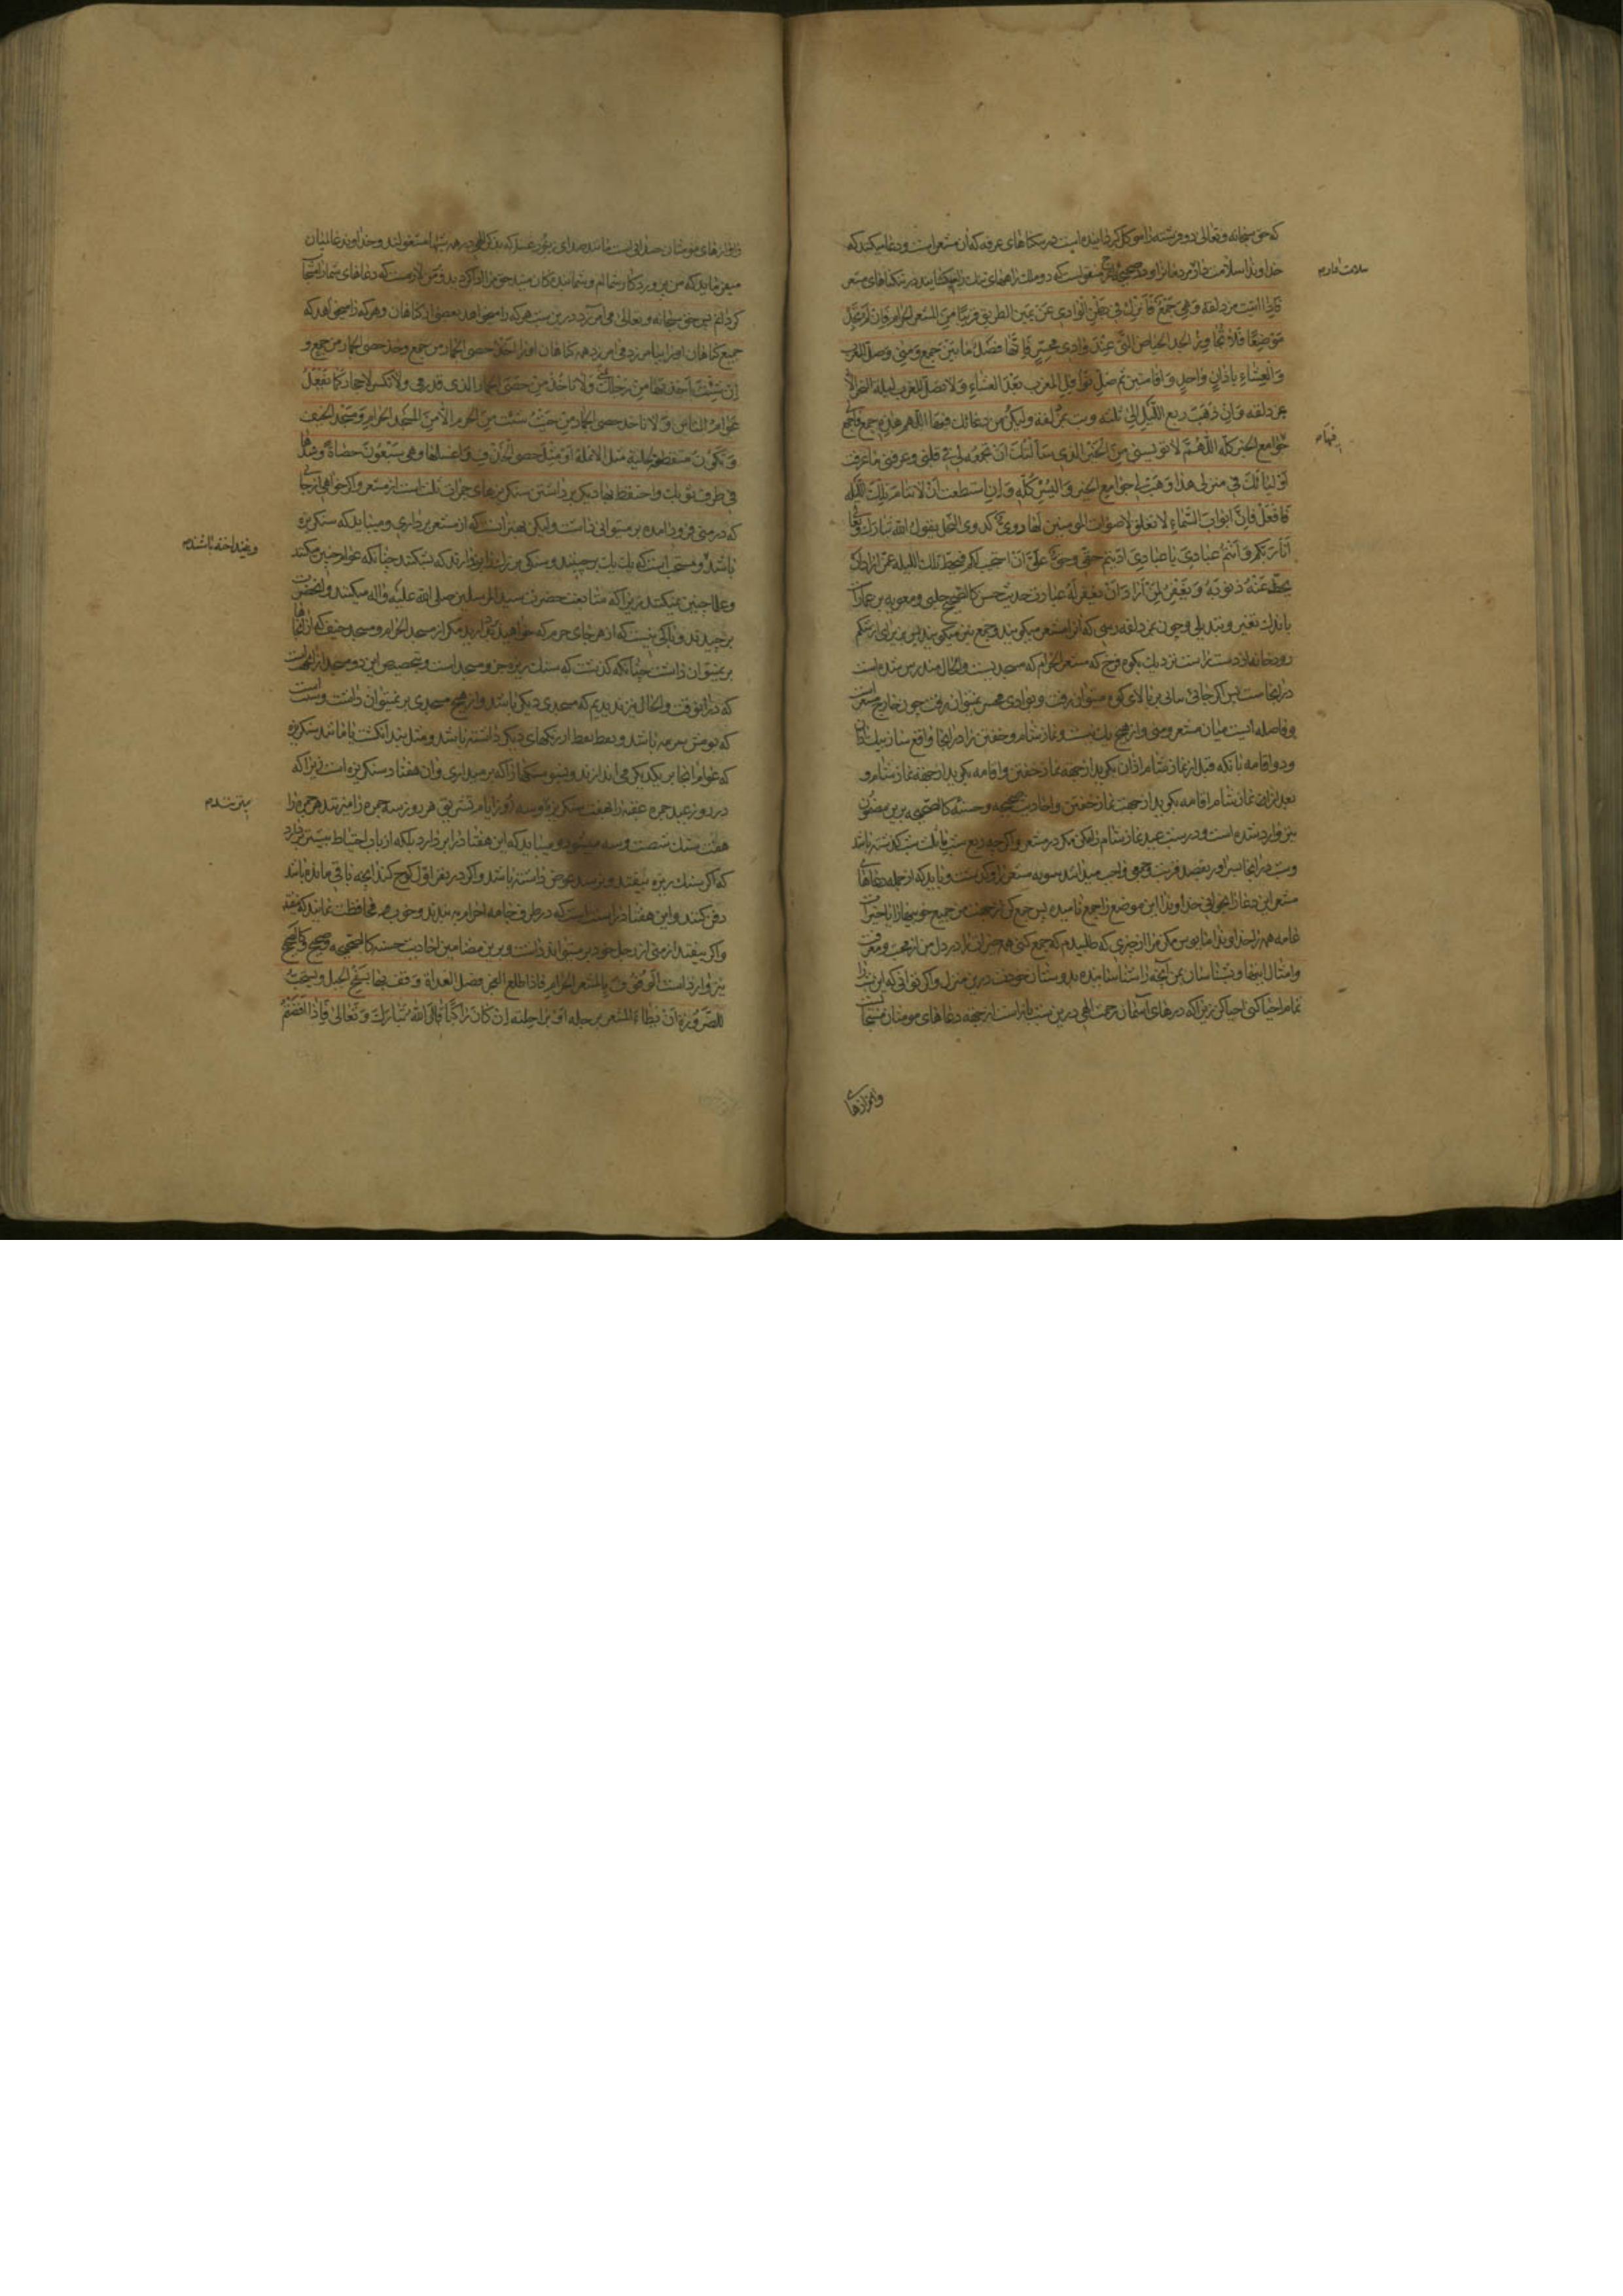 که حق سبحانه و تعالی دو فرشته را موکل گردانیده است در تنکناهای عرفه که آن مشعر است و دعا میکنند که
خداوندا سلامت دار مردمانرا و در صحیح منقولست که دو ملک در تنکناهای مشعر
سلامت دار م
فاذا اتیت مزدلفة و هی جمع فانزل فی بطن الوادی عن یمین الطریق قریبا من المشعر الحرام فان لم تجد
موضعا فلا تجاوز الحیاض التی عند وادی محسر فانها فصل ما بین جمع و منی و صل المغرب
و العشاء باذان واحد و اقامتین ثم صل نوافل المغرب بعد العشاء و لا تصل المغرب لیلة النحر الا
بمزدلفه و ان ذهب ربع اللیل الی ثلثه و بت بمزدلفة و لیکن من دعائک فیها اللهم هذه جمع فاجمع
جوامع الخیر کله اللهم لا تؤیسنی من الخیر الذی سالتک ان تجمعه لی فی قلبی و عرفنی ما عرفت
اولیائک فی منزلی هذا و هب لی جوامع الخیر و الیسر کله و ان استطعت ان لا تنام تلک اللیله
فافعل فان ابواب السماء لا تغلق لاصوات المؤمنین لها دوی کدوی النحل یقول الله تبارک و تعالی
انا ربکم و انتم عبادی یا عبادی ادیتم حقی و حق علی ان استجیب لکم فیحط تلک اللیلة عمن اراد ان
یحط عنه ذنوبه و یغفر لمن اراد ان یغفر له عبارت حدیث حسن کالصحیح حلبی و معویه بن عمار است
باندک تغییر و تبدیلی و چون بمزدلفه رسی که آنرا مشعر میکویند و جمع نیز میکویند پس بزیر آی در شکم
رودخانه از دست راست نزدیک بکوه قزح که مشعر الحرام که مسجدیست و الحال مندرس شده است
در انجاست پس اکر جائی نیابی بر بالای کوه میتوان رفت و بوادی محسر نمیتوان رفت چون خارج مشعر است
و فاصله ایست میان مشعر و منی و از هیچ یک نیست و نماز شام و خفتن را در انجا واقع ساز بیک اذان
و دو اقامه بانکه قبل از نماز شام اذان بکوید از جهة نماز خفتن و اقامه بکوید از جهة نماز شام و
بعد از ان نماز شام اقامه بکوید از جهت نماز خفتن و احادیث صحیحه و حسنه کالصحیحه برین مضمون
نیز وارد شده است و در شب عید نماز شام را مکن مکر در مشعر و اکر چه ربع شب یا ثلث شب کذشته باشد
و شب در انجا بسر آور بقصد قربت و جمعی واجب میدانند و باید که از جمله دعاهای
مشعر این دعا را بخوانی خداوندا این موضع را جمع نامیده پس جمع کن از جهت من جمیع خوبیها را با خیرات
عامه همه را خداوندا مایوس مکن مرا از چیزی که طلبیدم که جمع کنی همه خیرات را در دل من از محبت و معرفت
و امثال اینها و بشناسان بمن آنچه را شناسانیده بدوستان خودت درین منزل و اکر توانی که این شب را
تمام احیا کنی احیا کن زیرا که درهای آسمان رحمت الهی درین شب باز است از جهة دعاهای مومنان
و اوازهای
و اوازهای مومنان صدائی است مانند صدای زنبور عسل که بذکر الهی در همه شب مشغولند و خداوند عالمیان
میفرماید که من پروردکار شمایم و شما بندکان منید حق مرا ادا کردید و بر من لازمست که دعاهای شما را مستجاب
کردانم پس حق سبحانه و تعالی می آمرزد درین شب هر که را میخواهد بعضی از کناهان و هر که را میخواهد که
جمیع کناهان او را بیامرزد می آمرزد همه کناهان او را و خذ حصی الجمار من جمع و
ان شئت اخذتها من رحلک بمنی و لا تاخذ من حصی الجمار الذی قد رمی و لا تکسر الاحجار کما تفعل
عوام الناس و لا تاخذ حصی الجمار من حیث شئت من الحرم الا من المسجد الحرام و مسجد الخیف
و تکون منقطة کحلیة مثل الانملة او مثل حصی الخذف و اغسلها و هی سبعون حصاة و شدها
فی طرف ثوبک و احتفظ بها دیکر برداشتن سنکریزهای جمرات است از مشعر و اکر خواهی از جا
که در منی فرود آمده بر میتوانی داشت و لیکن بهتر آنست که از مشعر برداری و میباید که سنکریزه
و نینداخته باشند م
باشد و مستحب است که یک یک برچینند و سنکی بزرک را بر ندارند که بشکنند چنانکه عوام چنین میکنند
و علما چنین نمیکنند زیرا که متابعت حضرت سید المرسلین صلی الله علیه و اله میکنند و آنحضرت
برچیدند و باکی نیست که از هر جای حرم که خواهید بردارید مکر از مسجد الحرام و مسجد خیف که از انجاها
بر نمیتوان داشت چنانکه کذشت که سنک ریزه جزو مسجد است و تخصیص این دو مسجد از انجهت است
که در انوقت و الحال نیز ندیدیم که مسجدی دیکر باشد و از هیچ مسجدی بر نمیتوان داشت و سنت است
که بوش سرمه باشد و نقط نقط از رنکهای دیکر داشته باشد و مثل بند انکشت یا مانند سنکریزه
که عوام انجا بر یکدیکر می اندازند و بشو سنکها را که بر میداری و آن هفتاد سنکریزه است زیرا که
در روز عید جمره عقبه را هفت سنکریزه و سه روز ایام تشریق هر روز سه جمره را میزنند هر جمره را
هفت سنک شصت و سه میشود و میباید که این هفتاد را بر دارد بلکه از باب احتیاط بیشتر بر دارد
که اکر سنک ریزه بیفتد و نرسد عوض داشته باشد و اکر در نفر اول کوچ کند آنچه باقی مانده باشد
دفن کنند و این هفتاد را سنت است که در طرف جامه احرام به بندند و خوب محافظت نمایند که نیفتد
و اکر بیفتد از منی از رحل خود بر میتواند داشت و برین مضامین احادیث حسنه کالصحیحه و صحیح کالصحیح
نیز وارد است الوقوف بالمشعر الحرام فاذا طلع الفجر فصل الغداة و قف بها بسفح الجبل و یستحب
للصرورة ان یطاء المشعر برجله او براحلته ان کان راکبا قال الله تبارک و تعالی فاذا افضتم